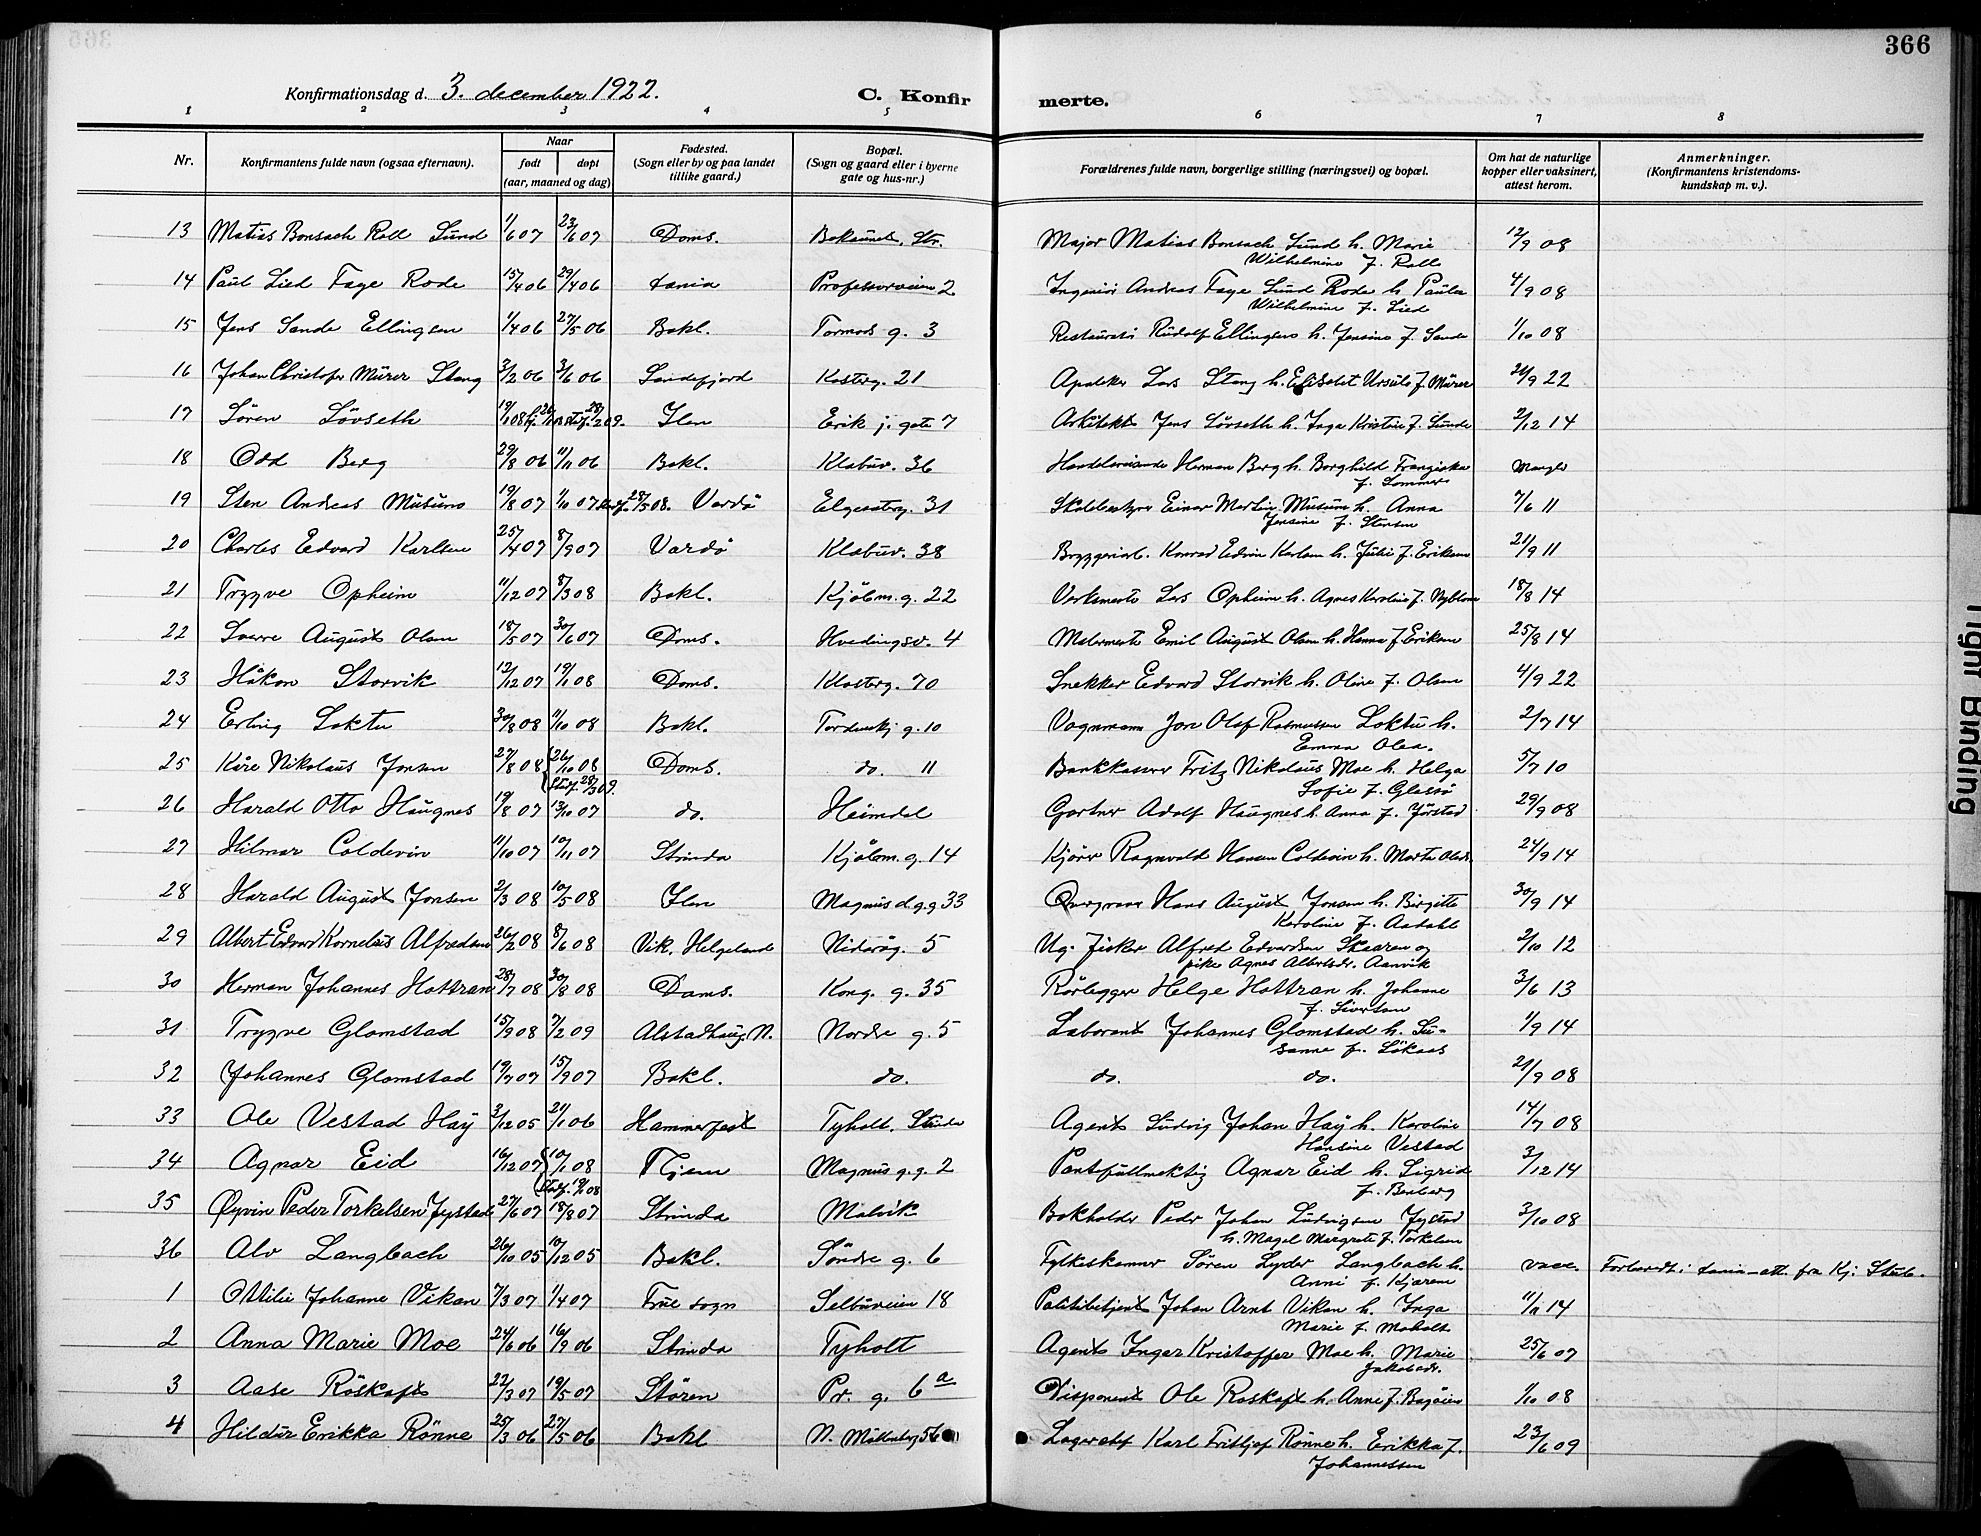 366
Konfirmationsdag d. 3. december 1922.
C. Konfirmerte.
1 2 3 4 5 6 7 8
Nr. | Konfirmantens fulde navn (ogsaa efternavn). | Naar født døpt (aar, maaned og dag) | Fødested. (Sogn eller by og paa landet tillike gaard.) | Bopæl. (Sogn og gaard eller i byerne gate og hus-nr.) | Forældrenes fulde navn, borgerlige stilling (næringsvei) og bopæl. | Om hat de naturlige kopper eller vaksinert, attest herom. | Anmerkninger. (Konfirmantens kristendomskundskap m. v.).
13 Matias Bonsach Roll Lund 1/6 07 23/6 07 Doms. Str. Major Matias Bonsach Lund h. Marie 12/9 08
Wilhelmine f. Roll
14 Paul Lied Faye Rode 15/4 06 29/4 06 Professorveien 2 Ingeniør Andreas Faye Lund Rode h. Paula 4/9 08
Wilhelmine f. Lied
15 Jens Sande Ellingsen 1/4 06 27/5 06 Bakl. Tormods g. 3 Restauratør Rudolf Ellingsen h. Jensine f. Sande 1/10 08
16 Johan Christofer Mürer Stang 3/2 06 3/6 06 Sandefjord Klosterg. 21 Apoteker Lars Stang h. Elisabet Ursula f. Mürer 22
17 Sören Lövseth Ilen Erik j. gate 7 Arkitekt Jens Lövseth h. Inga Kristine f. Sunde 2/12 14
18 Odd Berg 29/8 06 11/11 06 Bakl. Klæbuv. 36 Handelsreisende Herman Berg h. Borghild Frangiska mangler
f. Sommer
19 Sten Andreas Musum 19/8 07 1/10 07 28/5 08. Vardö Elgeseterg. 31 Skolebestyrer Einar Martin Musum h. Anna 7/6 11
Jensine f. Stensen
20 Charles Edvard Karlsen 25/4 07 8/9 07 Vardö Klæbuv. 38 Bryggeriarb. Konrad Edvin Karlsen h. Julie f. Eriksen 21/9 11
21 Trygve Opheim 11/12 07 8/3 08 Bakl. Kjöbm. g. 22 Verksmester Lars Opheim h. Agnes Karoline f. Nyblom 18/8 14
22 Sverre August Olsen 18/5 07 30/6 07 Doms. Hvedingsv. 4 Malermester Emil August Olsen h. Hanna f. Eriksen 25/8 14
23 Håkon Storvik 12/12 07 19/1 08 Doms. Klosterg. 70 Snekker Edvard Storvik h. Oline f. Olsen 4/9 22
24 Erling Loktu 30/8 08 11/10 08 Bakl. Tordenskj. g. 10 Vognmann Jon Olaf Rasmussen Loktu h. 2/7 14
Emma Olea.
25 Kåre Nikolaus Jonsen 27/8 08 26/10 08 Doms. do. 11 Bankkasserer Fritz Nikolaus Moe h. Helga 5/7 10
28/3 09. Sofie f. Glasö
26 Harald Otto Haugnes 19/8 07 13/10 07 do. Heimdal Gartner Adolf Haugnes h. Anna f. Jörstad 29/9 08
27 Hilmar Coldevin 11/10 07 10/11 07 Strinda Kjöbm. g. 14 Kjörer Ragnvald Hansen Coldevin h. Marta Olsdr. 24/9 14
28 Harald August Jonsen 2/3 08 10/5 08 Ilen Magnus d. g. g 33 Hans August Jonsen h. Birgitte 30/9 14
Karoline f. Aadahl
29 Albert Edvard Kornelius Alfredsen 26/2 08 8/6 08 Vik, Helgeland Nidarög. 5 Ug. fisker Alfred Edvardsen Skaaren og 2/10 12
pike Agnes Albertsdr. Aanvik
30 Herman Johannes Hottran 28/7 08 30/8 08 Doms. Kong. g. 35 Rörlegger Helge Hottran h. Johanne 3/6 13
f. Sivertsen
31 Trygve Glomstad 15/9 08 7/2 09 Alstadhaug. N. Nordre g. 5 Laborant Johannes Glomstad h. Su- 1/9 14
sanne f. Lökaas
32 Johannes Glomstad 19/7 07 15/9 07 Bakl. do. do. do. 21/9 08
33 Ole Vestad Høy 3/12 05 21/1 06 Hammerfest Tyholt. Strinda Agent Ludvig Johan Høy h. Karoline 14/7 08
Hansine Vestad
34 Agnar Eid 16/12 07 10/1 08 Magnus g. g. 2 Postfullmektig Agnar Eid h. Sigrid 3/12 14
f. Benberg
35 Øyvin Peder Torkelsen Jystad 27/6 07 18/8 07 Strinda Malvik Bokholder Peder Johan Ludvigsen Jystad 3/10 08
h. Magel Margrete f. Torkelsen
36 Alv Langbach 26/10 05 10/12 05 Bakl. Söndre g. 6 Fylkeskasserer Sören Lyder Langbach h. vacc. Forberedt i att. fra Kj. Stub.
Anni f. Kjærem
1 Ottilie Johanne Vikan 7/3 07 1/4 07 Frue sogn Selbuveien 18 Politibetjent Johan Arnt Vikan h. Inga 11/11 14
Marie f. Moholt
2 Anna Marie Moe 24/6 06 16/9 06 Strinda Tyholt Agent Ingar Kristoffer Moe h. Marie 25/6 07
Jakobsdr.
3 Aase Röskaft 22/3 07 19/5 07 Stören Pr. g. 6 a Disponent Ole Roskaft h. Anne f. Bagöien 1/10 08
4 Hildur Erikka Rönne 25/3 06 27/5 06 Bakl N. Möllenberg 56 Karl Fritljof Rönne h. Erikka f. 23/6 09
Johannessen
Tight Binding